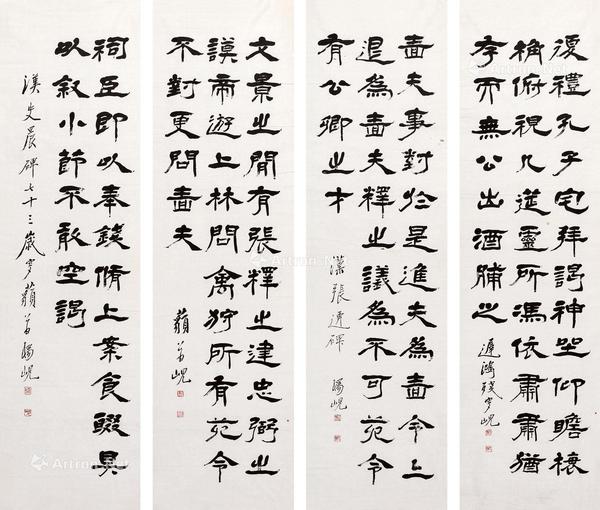 復禮孔子宅拜謁神坐仰瞻榱
桷俯視几筵靈所馮依肅肅猶
存而無公出酒脯之
遲鴻殘叟峴
嗇夫事對於是進夫為嗇令上
退為嗇夫釋之議為不可苑令
有公卿之才
漢張遷碑
楊峴
文景之間有張釋之建忠弼之
謨帝遊上林問禽狩所有苑令
不對更問嗇夫
藐翁峴
祠臣即以奉錢脩上案食醊具
以敘小節不敢空謁
漢史晨碑七十三歲叟藐翁楊峴